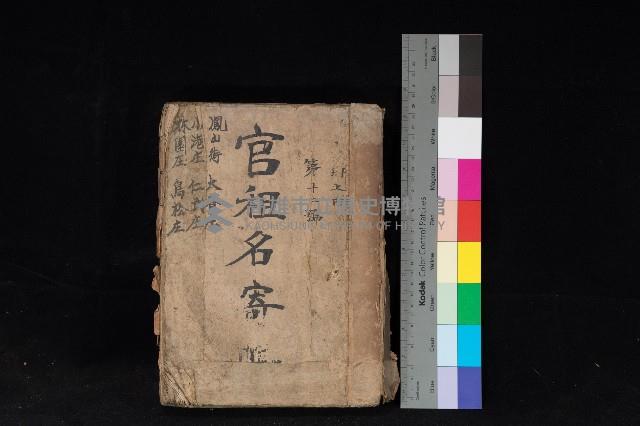 第十
官租名寄
鳳山街 大
小港庄 仁武庄
林園庄 鳥松庄
高雄市立歷史博物館
KAOHSIUNG MUSEUM OF HISTORY
Kodak Color Control Patches
Black
White
Magenta
Red
Yellow
Green
Cyan
Blue